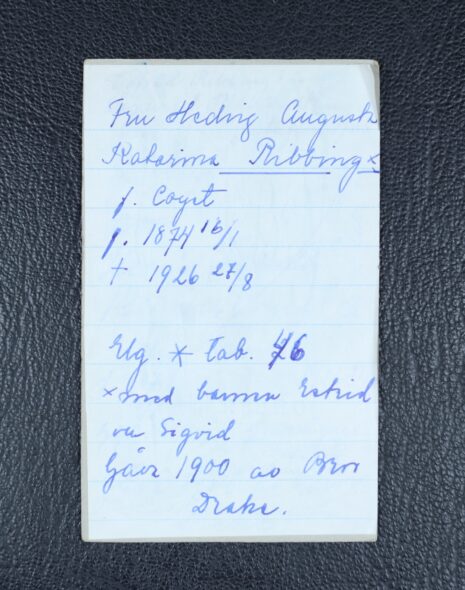 Fru Hedvig Augusta
Katarina Ribbing ×
f. Coyet
f. 1874 16/1
† 1926 27/8
Elg. * tab. 46
× med barnen Estrid
Sigvid
Gåva 1900 av Bror
Drake.